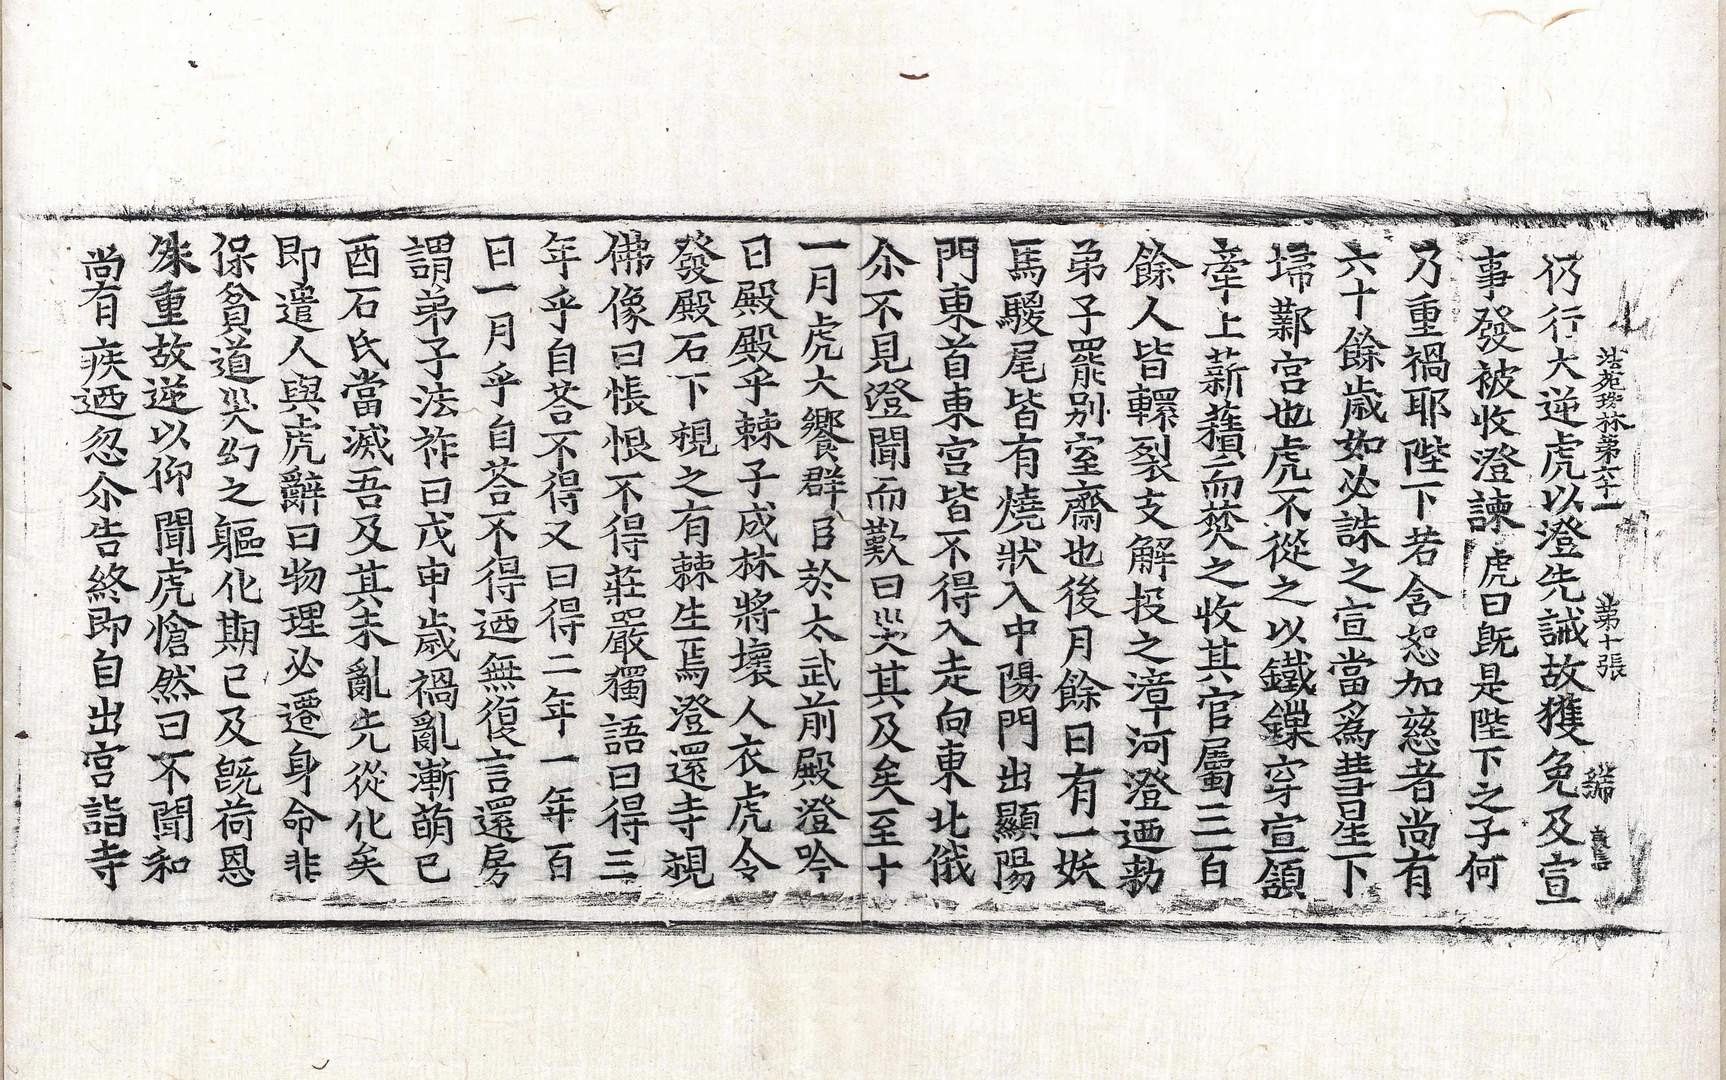 法苑珠林第六十一 第十張 綿
仍行大逆虎以澄先誡故獲免及宣
事發被收澄諫虎曰旣是陛下之子何
乃重禍耶陛下若含恕加慈者尚有
六十餘歲如必誅之宣當爲彗星下
埽鄴宮也虎不從之以鐵鏁穿宣頷
牽上薪𧂐而焚之收其官屬三百
餘人皆轘裂支解投之漳河澄迺勑
弟子罷别室齋也後月餘日有一妖
馬騣尾皆有燒狀入中陽門出顯陽
門東首東宮皆不得入走向東北俄
尒不見澄聞而歎曰災其及矣至十
一月虎大饗群臣於太武前殿澄吟
曰殿殿乎棘子成林將壞人衣虎令
發殿石下視之有棘生焉澄還寺視
佛像曰悵恨不得莊嚴獨語曰得三
年乎自荅不得又曰得二年一年百
日一月乎自荅不得迺無復言還房
謂弟子法祚曰戊申歲禍亂漸萌已
酉石氏當滅吾及其未亂先從化矣
即遣人與虎辭曰物理必遷身命非
保貧道災幻之軀化期已及旣荷恩
殊重故逆以仰聞虎愴然曰不聞和
尚有疾迺忽尒告終即自出宮詣寺